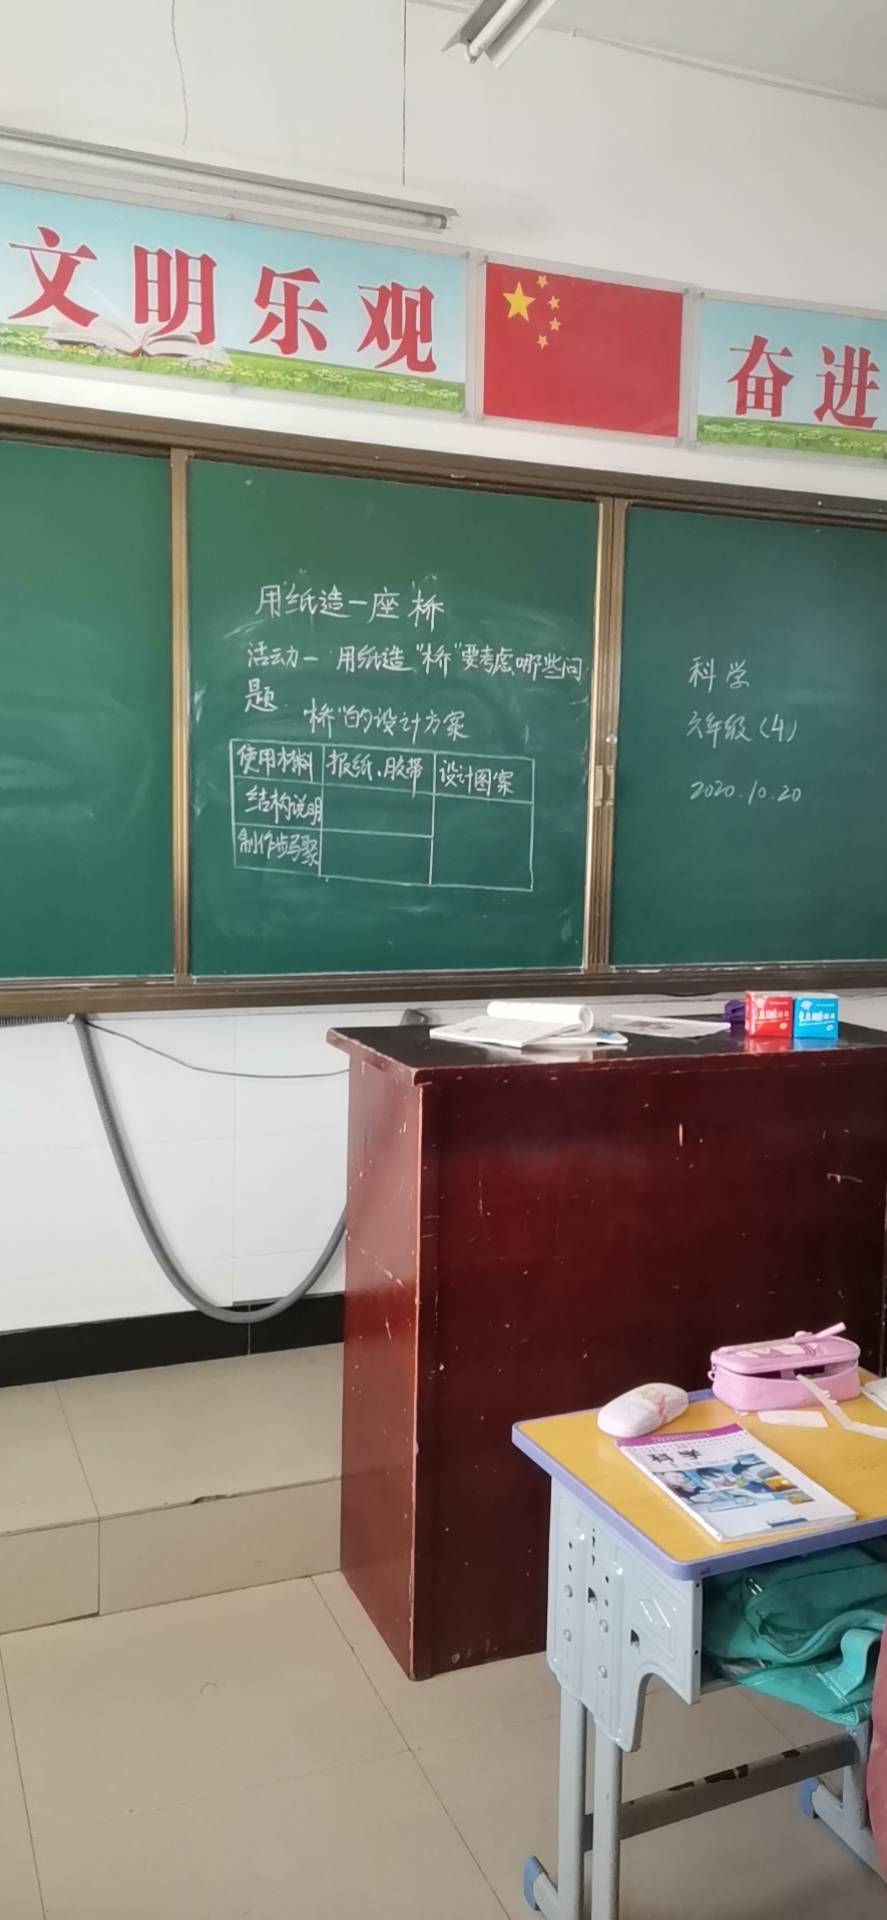 文明乐观
奋进
用纸造一座"桥"
活动一 用纸造"桥"要考虑哪些问
题
"桥"的设计方案
使用材料 报纸、胶带 设计图案
结构说明
制作步骤
科学
六年级(4)
2020.10.20
科学